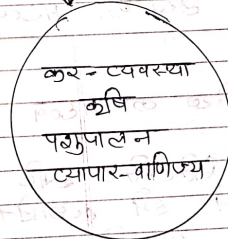 कर - व्यवस्था
कृषि
पशुपालन
व्यापार-वाणिज्य